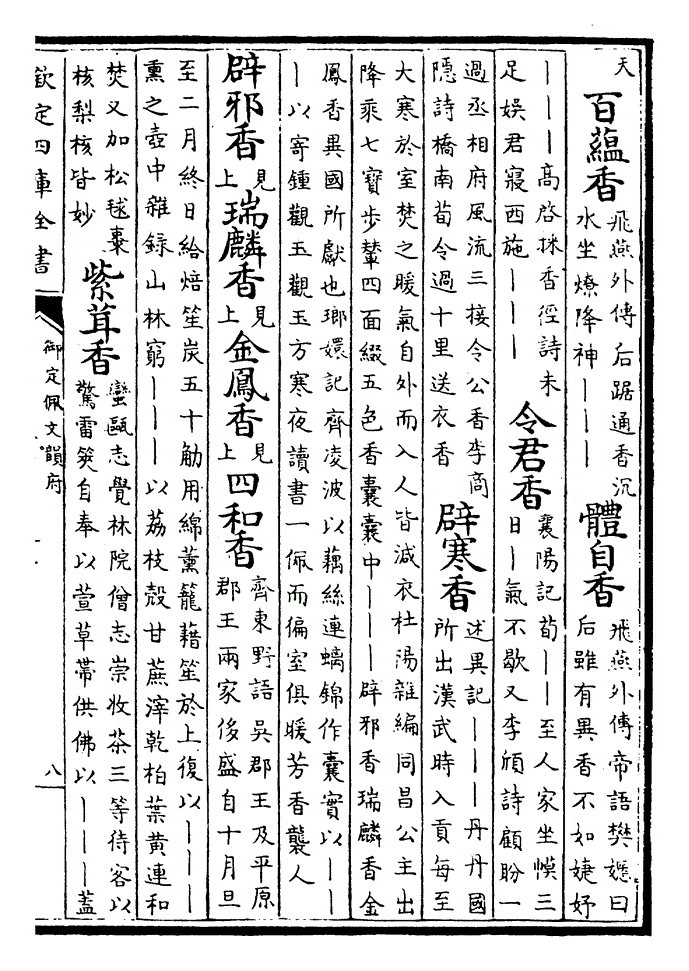 天
百蘊香
飛燕外傳后踞通香沉
水坐燎降神｜｜｜
體自香
飛燕外傳帝語樊嫕曰
后雖有異香不如婕妤
｜｜｜高啓採香徑詩未
足娛君寢西施｜｜｜
令君香
襄陽記荀｜｜至人家坐幙三
日｜氣不歇又李頎詩顧盼一
過丞相府風流三接令公香李商
隱詩橋南荀令過十里送衣香
辟寒香
述異記｜｜｜丹丹國
所出漢武時入貢每至
大寒於室焚之暖氣自外而入人皆減衣杜陽雜編同昌公主出
降乘七寶步輦四面綴五色香囊囊中｜｜｜辟邪香瑞麟香金
鳳香異國所獻也瑯嬛記齊凌波以藕絲連螭錦作囊實以｜｜
｜以寄鍾觀玉觀玉方寒夜讀書一佩而徧室俱暖芳香襲人
辟邪香
見上
瑞麟香
見上
金鳳香
見上
四和香
齊東野語吳郡王及平原
郡王兩家侈盛自十月旦
至二月終日給焙笙炭五十觔用綿薰籠藉笙於上復以｜｜｜
熏之壺中雜錄山林窮｜｜｜以荔枝殼甘蔗滓乾柏葉黃連和
焚又加松毬棗
核梨核皆妙
紫茸香
蠻甌志覺林院僧志崇收茶三等待客以
驚雷筴自奉以萱草帶供佛以｜｜｜蓋
欽定四庫全書
御定佩文韻府
八